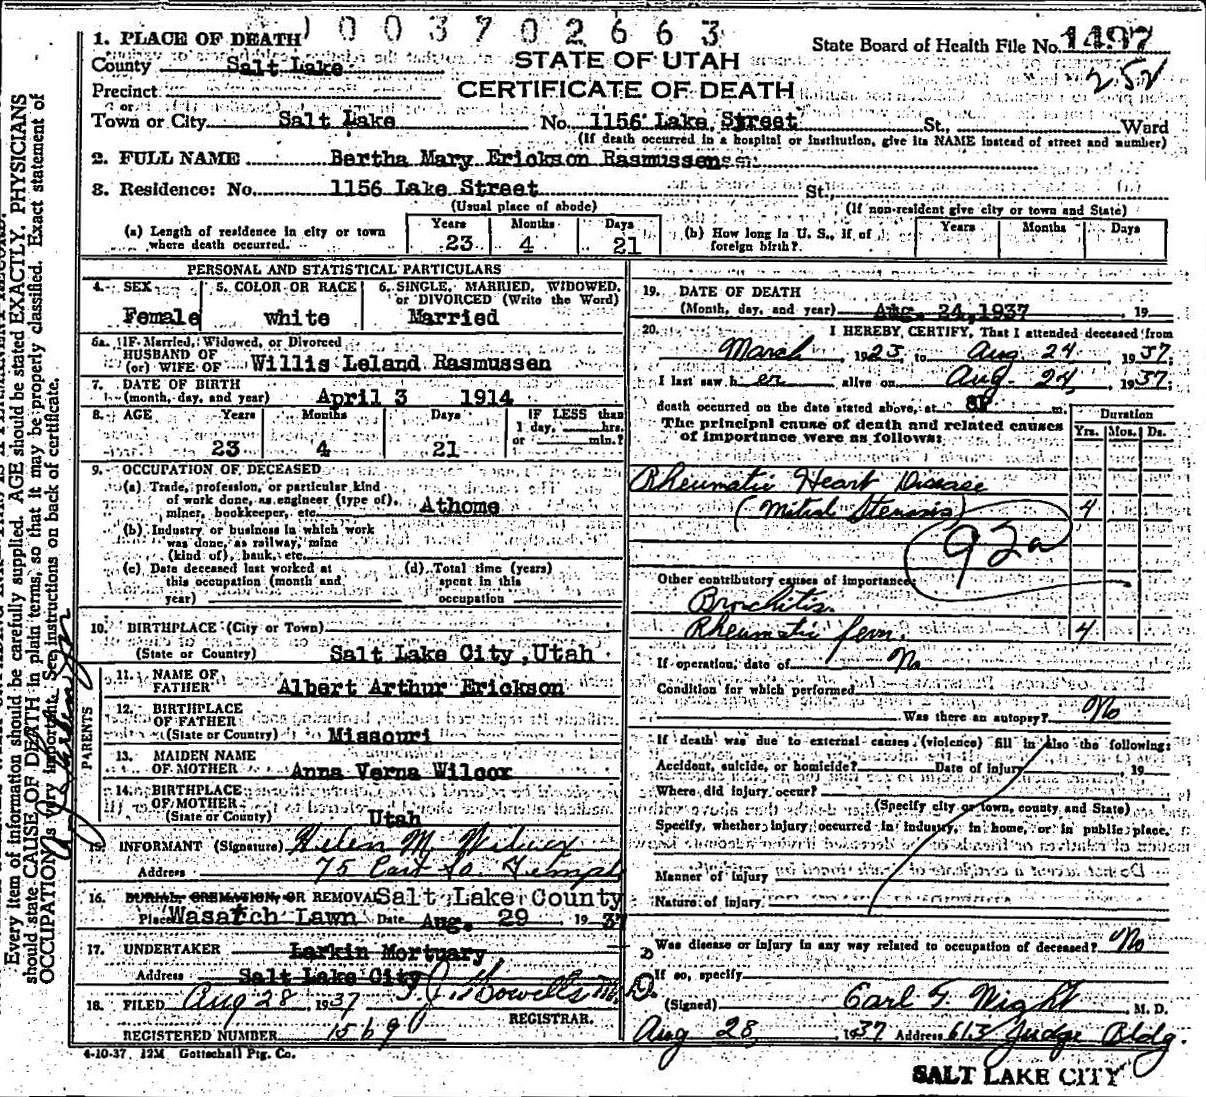 1003702663
1. PLACE OF DEATH
State Board of Health File No. 1497
County Salt Lake
STATE OF UTAH
252
Precinct
CERTIFICATE OF DEATH
or
Town or City Salt Lake No. 1156 Lake Street St., Ward
(If death occurred in a hospital or institution, give its NAME instead of street and number)
2. FULL NAME Bertha Mary Erickson Rasmussen
3. Residence: No. 1156 Lake Street St.
(Usual place of abode) (If non-resident give city or town and State)
(a) Length of residence in city or town where death occurred. Years 23 Months 4 Days 21
(b) How long in U. S., if of foreign birth? Years Months Days
PERSONAL AND STATISTICAL PARTICULARS
4. SEX 5. COLOR OR RACE 6. SINGLE, MARRIED, WIDOWED, or DIVORCED (Write the Word)
Female white Married
6a. IF Married, Widowed, or Divorced
HUSBAND OF
(or) WIFE OF Willis Leland Rasmussen
7. DATE OF BIRTH
(month, day, and year) April 3 1914
8. AGE Years Months Days IF LESS than
1 day, hrs.
or min.?
23 4 21
9. OCCUPATION OF DECEASED
(a) Trade, profession, or particular kind
of work done, as engineer (type of),
miner, bookkeeper, etc. Athome
(b) Industry or business in which work
was done, as railway, mine
(kind of), bank, etc.
(c) Date deceased last worked at
this occupation (month and
year)
(d) Total time (years)
spent in this
occupation
10. BIRTHPLACE (City or Town)
(State or Country) Salt Lake City, Utah
PARENTS
11. NAME OF
FATHER Albert Arthur Erickson
12. BIRTHPLACE
OF FATHER
(State or Country) Missouri
13. MAIDEN NAME
OF MOTHER Anna Verna Wilcox
14. BIRTHPLACE
OF MOTHER
(State or Country) Utah
15. INFORMANT (Signature) Helen M. Wilcox
Address 75 East So. Temple
16. BURIAL, CREMATION, OR REMOVAL Salt Lake County
Place Wasatch Lawn Date Aug. 29 1937
17. UNDERTAKER Larkin Mortuary
Address Salt Lake City
18. FILED Aug 28 1937 T. J. Howells M.D.
REGISTRAR.
REGISTERED NUMBER 1569
4-10-37 12M Gottschall Ptg. Co.
19. DATE OF DEATH
(Month, day, and year) Aug. 24, 1937 19
20. I HEREBY CERTIFY, That I attended deceased from
March 1923 to Aug 24 1937
I last saw her alive on Aug. 24, 1937;
death occurred on the date stated above, at 8P m.
The principal cause of death and related causes
of importance were as follows:
Duration
Yrs. Mos. Ds.
Rheumatic Heart Disease
(Mitral Stenosis) 4
92a
Other contributory causes of importance:
Bronchitis
Rheumatic fever. 4
If operation, date of No
Condition for which performed
Was there an autopsy? No
If death was due to external causes (violence) fill in also the following:
Accident, suicide, or homicide? Date of injury 19
Where did injury occur?
(Specify city or town, county and State)
Specify, whether injury occurred in industry, in home, or in public place.
Manner of injury
Nature of injury
Was disease or injury in any way related to occupation of deceased? No
If so, specify
(Signed) Carl T. Wight M. D.
Aug 28, 1937 Address 613 Judge Bldg.
SALT LAKE CITY
Every item of information should be carefully supplied. AGE should be stated EXACTLY. PHYSICIANS
should state CAUSE OF DEATH in plain terms, so that it may be properly classified. Exact statement of
OCCUPATION is very important. See instructions on back of certificate.